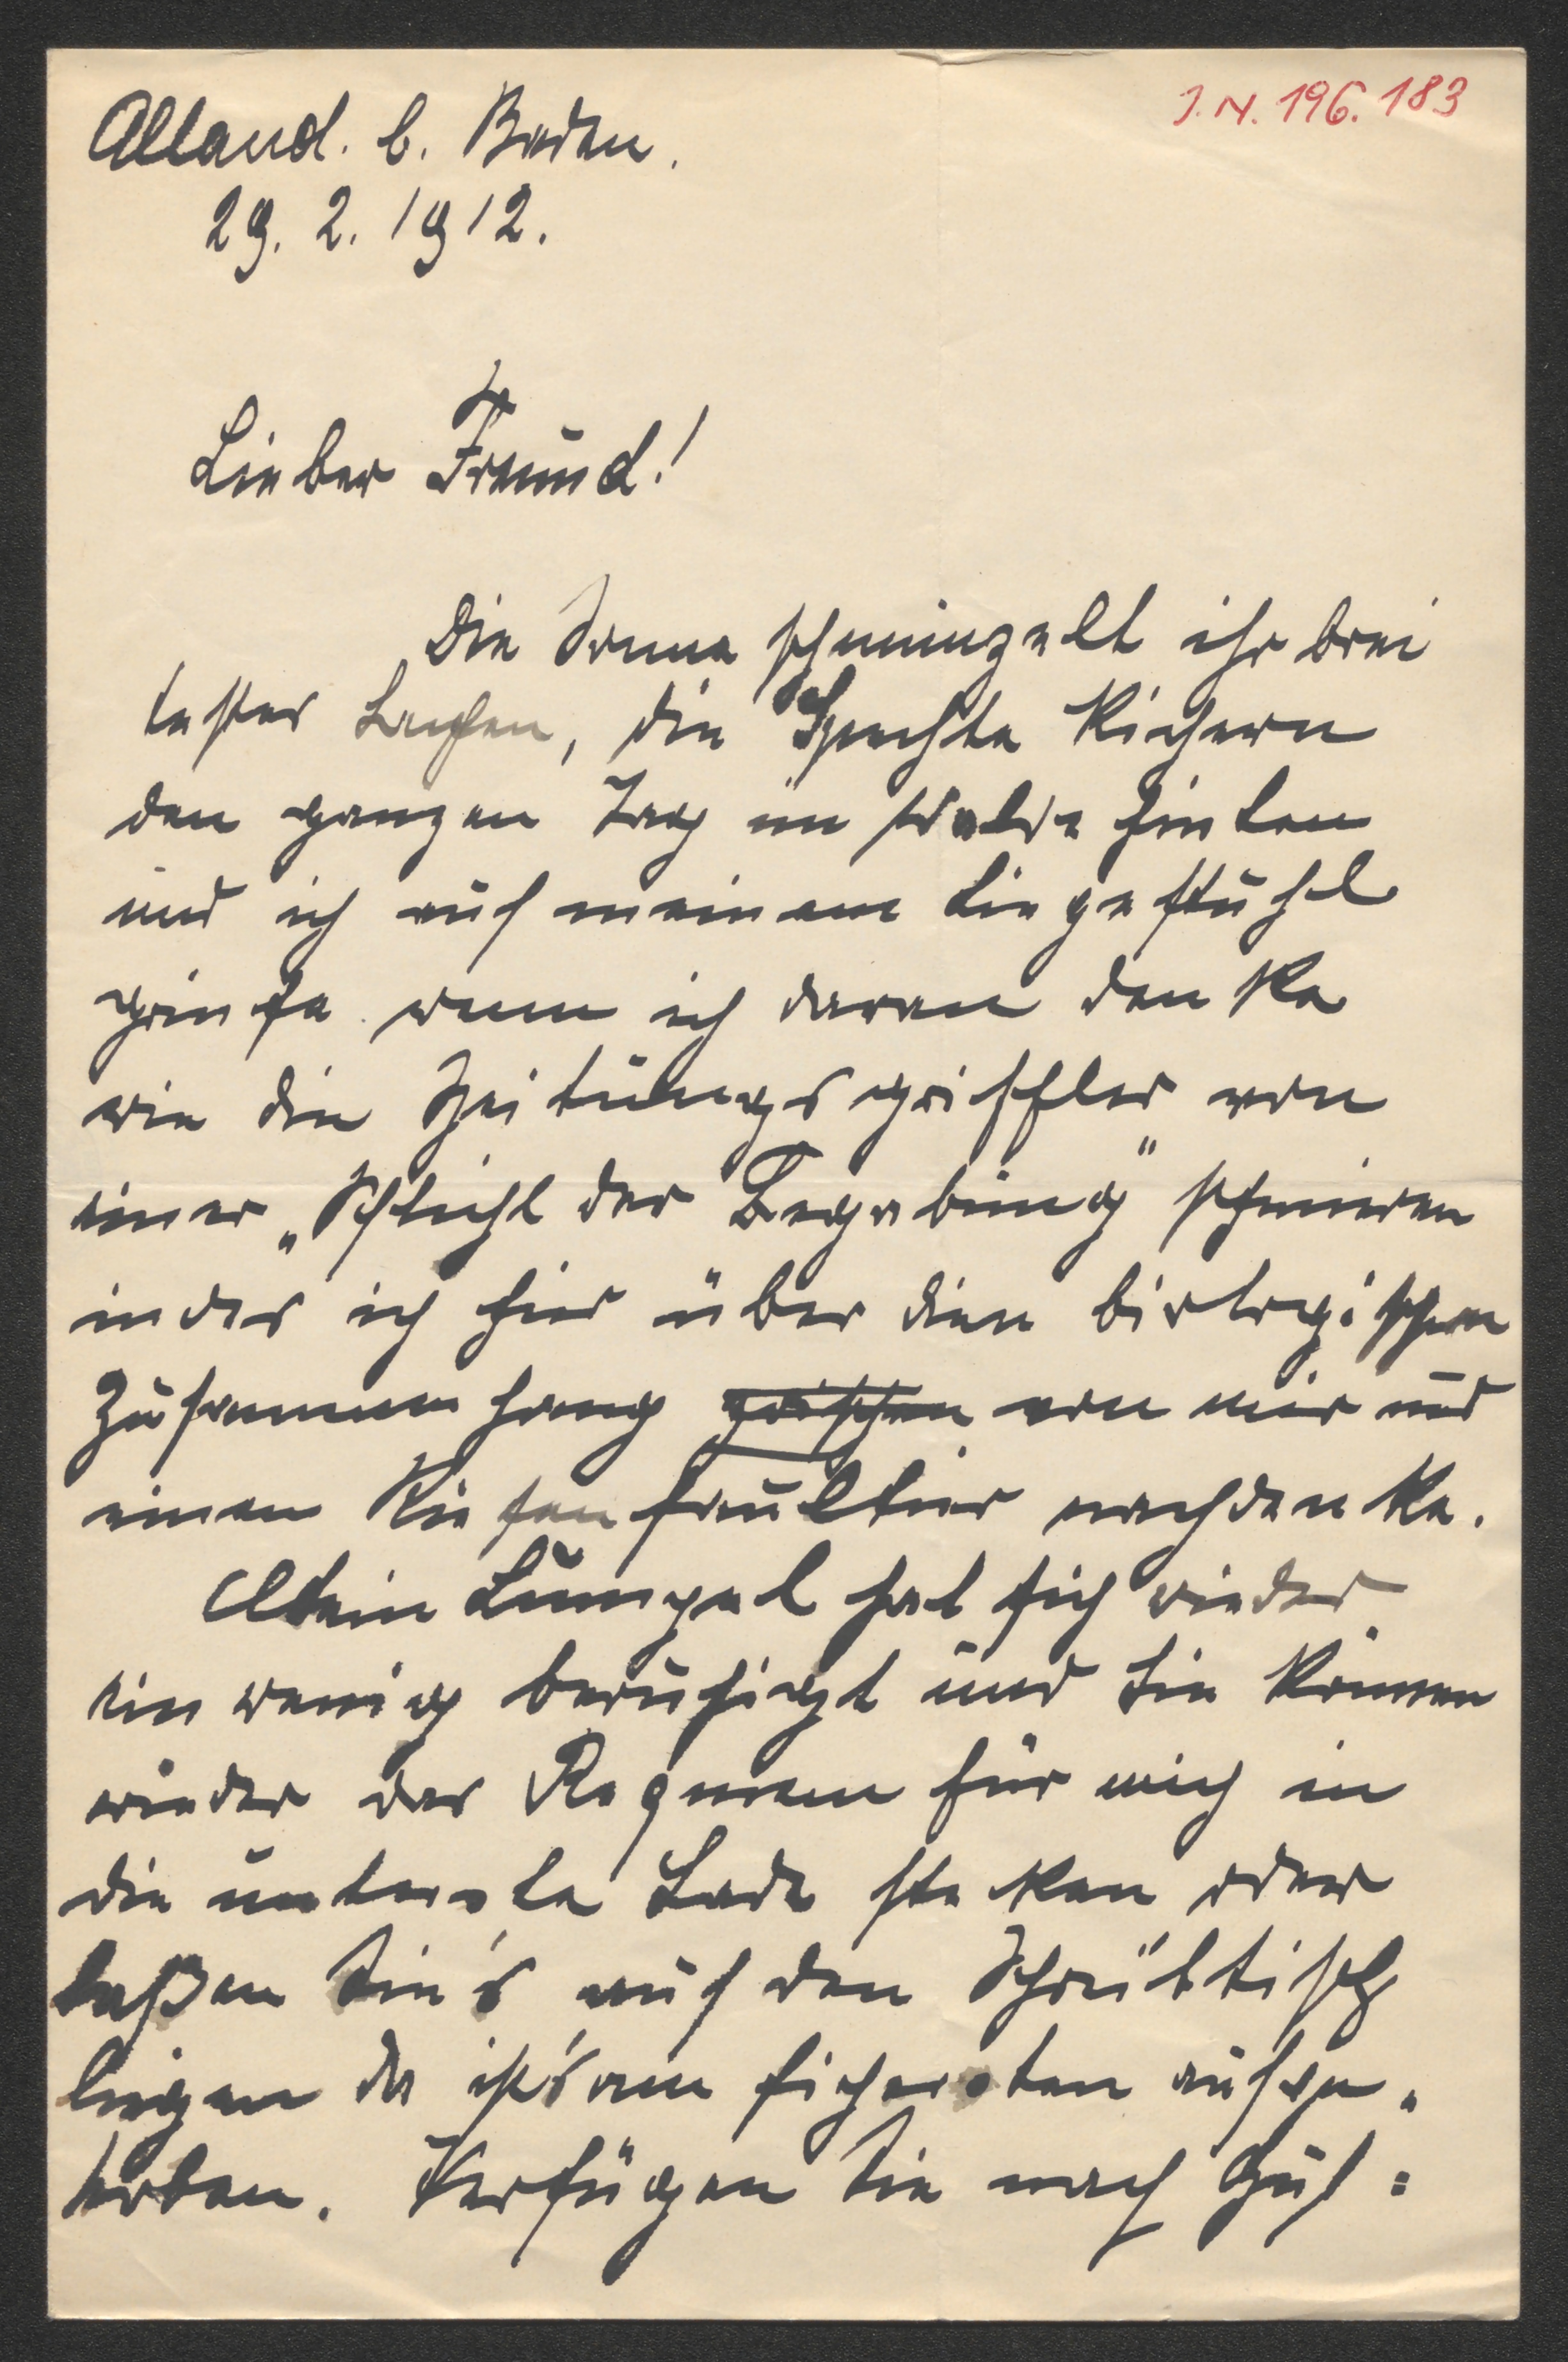 J. N. 196.183
Alland. b. Baden.
29. 2. 1912.
Lieber Freund!
Die Sonne schmunzelt ihr brei
testes Lachen, die Spechte kichern
den ganzen Tag im Walde hinten
und ich auf meinem Liegestuhl
grinse wenn ich daran denke
wie die Zeitungsgriffler von
einer „Schlicht der Begabung" schmieren
indes ich hier über den biologischen
Zusammenhang zwischen von mir und
einem Riesenfaultier nachdenke.
Mein Lumpel hat sich wieder
ein wenig beruhigt und Sie können
wieder das Requiem für mich in
die unterste Lade stecken oder
laßen Sie's auf den Schreibtisch
liegen da ist's am sichersten aufge„
hoben. Verfügen Sie nach Gut=